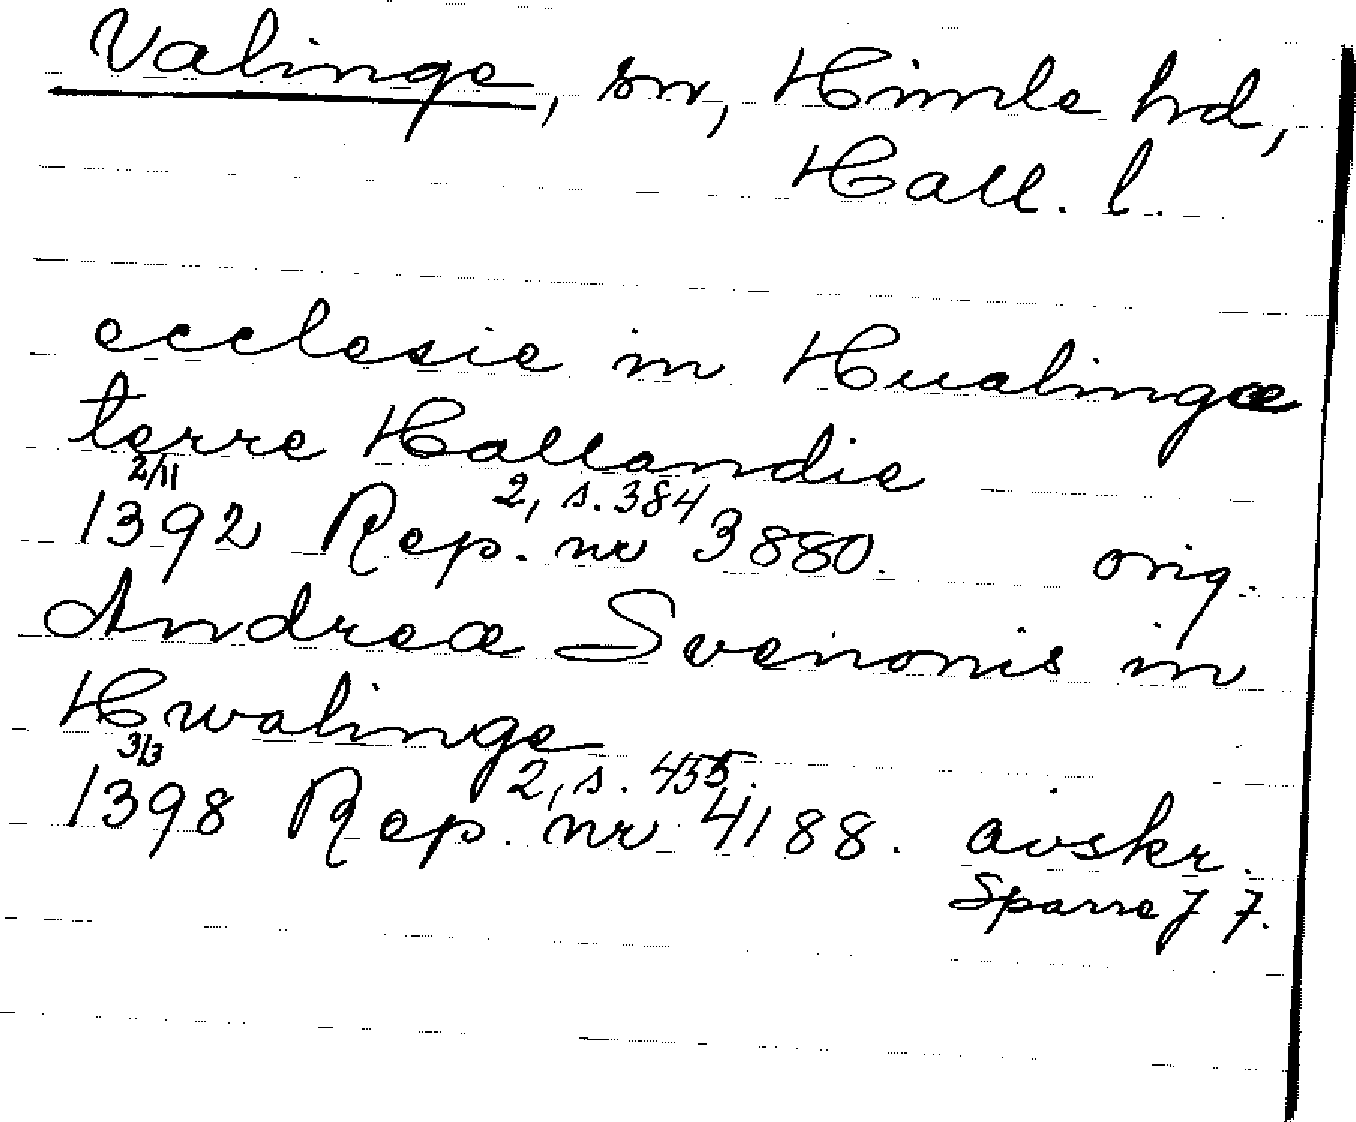 Valinge, sn, Himle hd,
Hall. l.
ecclesie in Hualingæ
terre Hallandie
2/11 2, s. 384
1392 Rep. nr 3880. orig.
Andrea Svenonis in
Hwalinge
3/3 2, s. 455.
1398 Rep. nr 4188. avskr.
Sparre J 7.